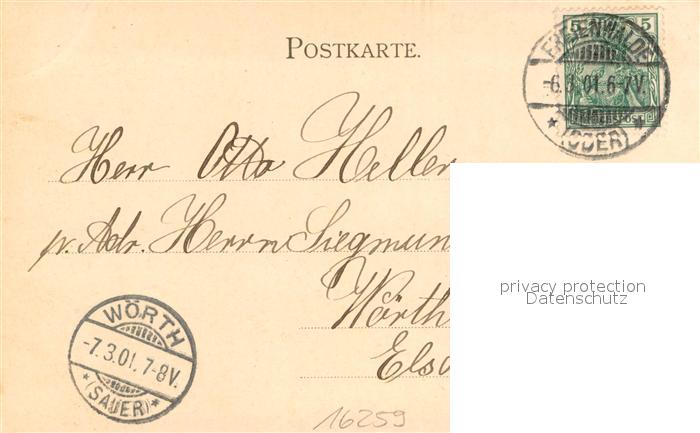 POSTKARTE.
5 5
FREIENWALDE
-6.3.01.6-7V.
* (ODER) *
Herr Otto Heller
p. Adr. Herrn Siegmun
privacy protection
Datenschutz
Wörth
WÖRTH
-7.3.01.7-8V.
* (SAUER) *
Els
16259